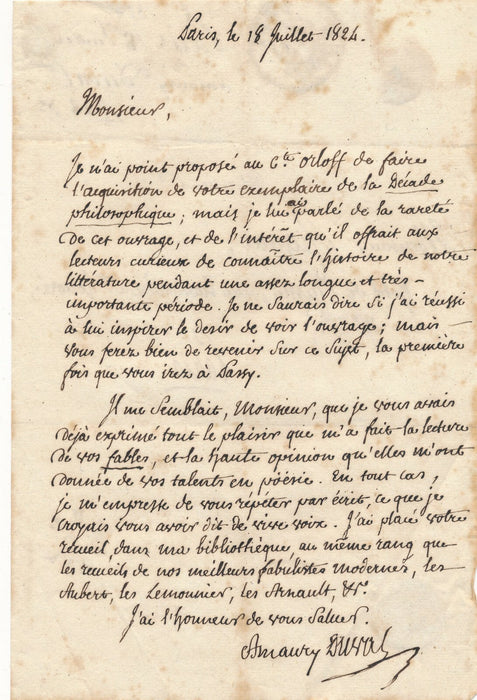 Paris, le 18 Juillet 1824.
Monsieur,
Je n'ai point proposé au Cte Orloff de faire
l'acquisition de votre exemplaire de la Décade
philosophique; mais je lui ai parlé de la rareté
de cet ouvrage, et de l'intérêt qu'il offrait aux
lecteurs curieux de connaître l'histoire de notre
littérature pendant une assez longue et très-
importante période. Je ne saurais dire si j'ai réussi
à lui inspirer le desir de voir l'ouvrage; mais
vous ferez bien de revenir sur ce sujet, la première
fois que vous irez à Passy.
Il me semblait, Monsieur, que je vous avais
déjà exprimé tout le plaisir que m'a fait la lecture
de vos fables, et la haute opinion qu'elles m'ont
donnée de vos talents en poésie. En tout cas,
je m'empresse de vous répéter par écrit, ce que je
croyais vous avoir dit de vive voix. J'ai placé votre
recueil, dans ma bibliothèque, au même rang que
les recueils de nos meilleurs fabulistes modernes, les
Aubert, les Lemonnier, les Arnault, &c.
J'ai l'honneur de vous saluer.
Amaury Duval